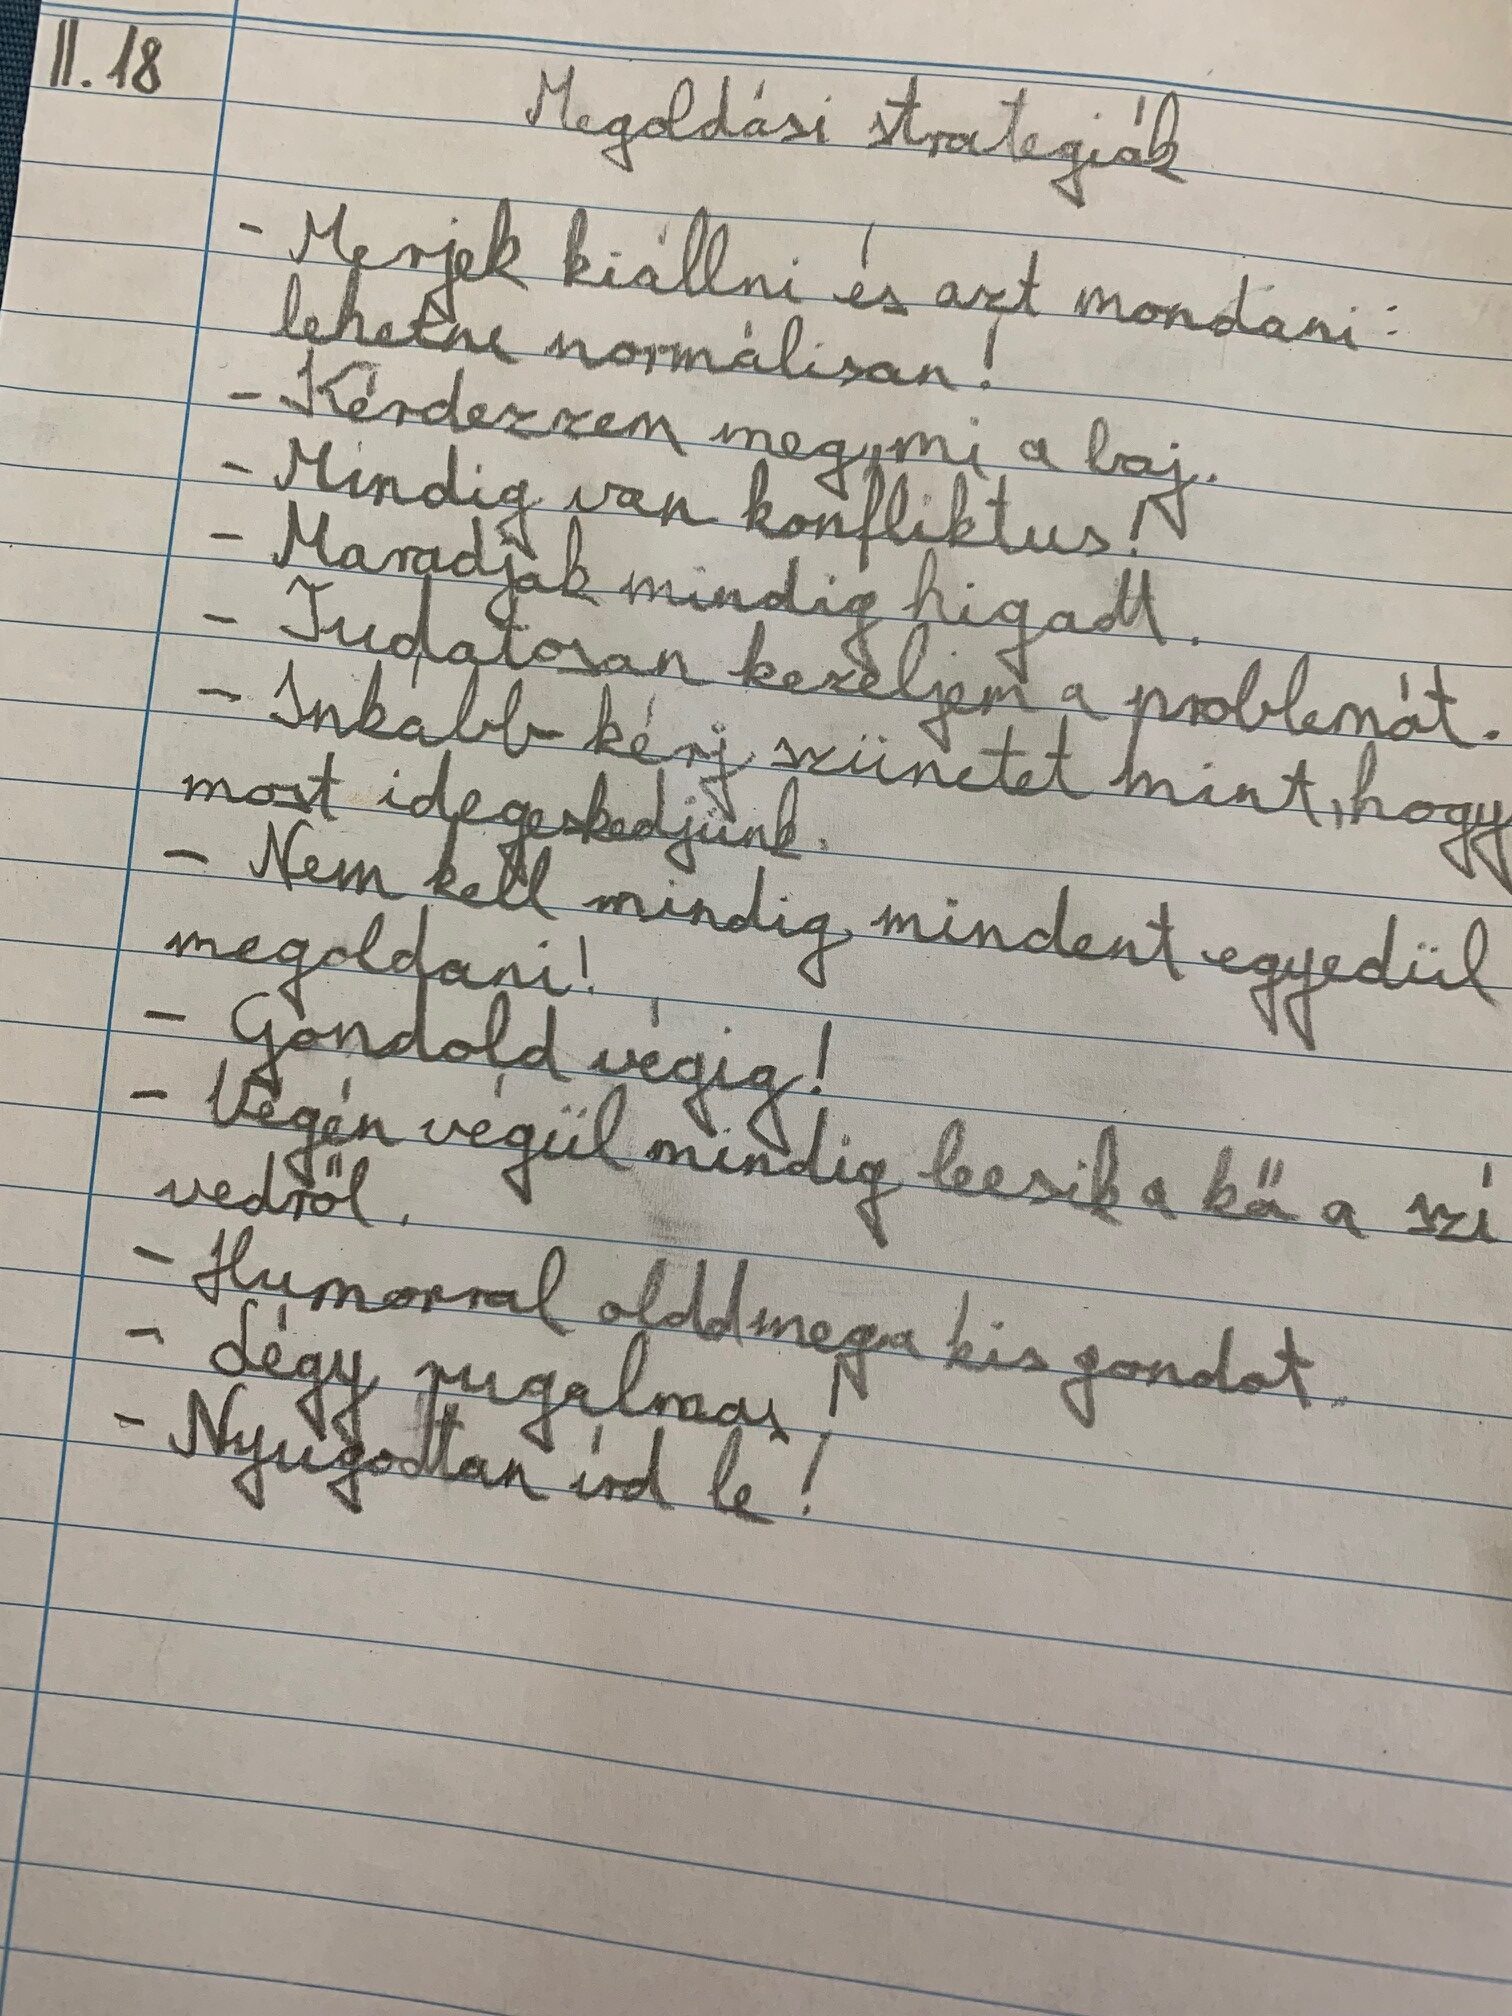 II. 18
Megoldási strategiák
- Merjek kiállni és azt mondani:
lehetne normálisan!
- Kérdezzem meg, mi a baj.
- Mindig van konfliktus!
- Maradjak mindig higadt.
- Tudatosan kezeljem a problemát.
- Inkabb kérj szünetet mint, hogy
most idegeskedjünk.
- Nem kell mindig mindent egyedül
megoldani!
- Gondold végig!
- Végén végül mindig leesik a kő a szí
vedről.
- Humorral oldd meg a kis gondot.
- Légy rugalmas!
- Nyugodtan írd le!